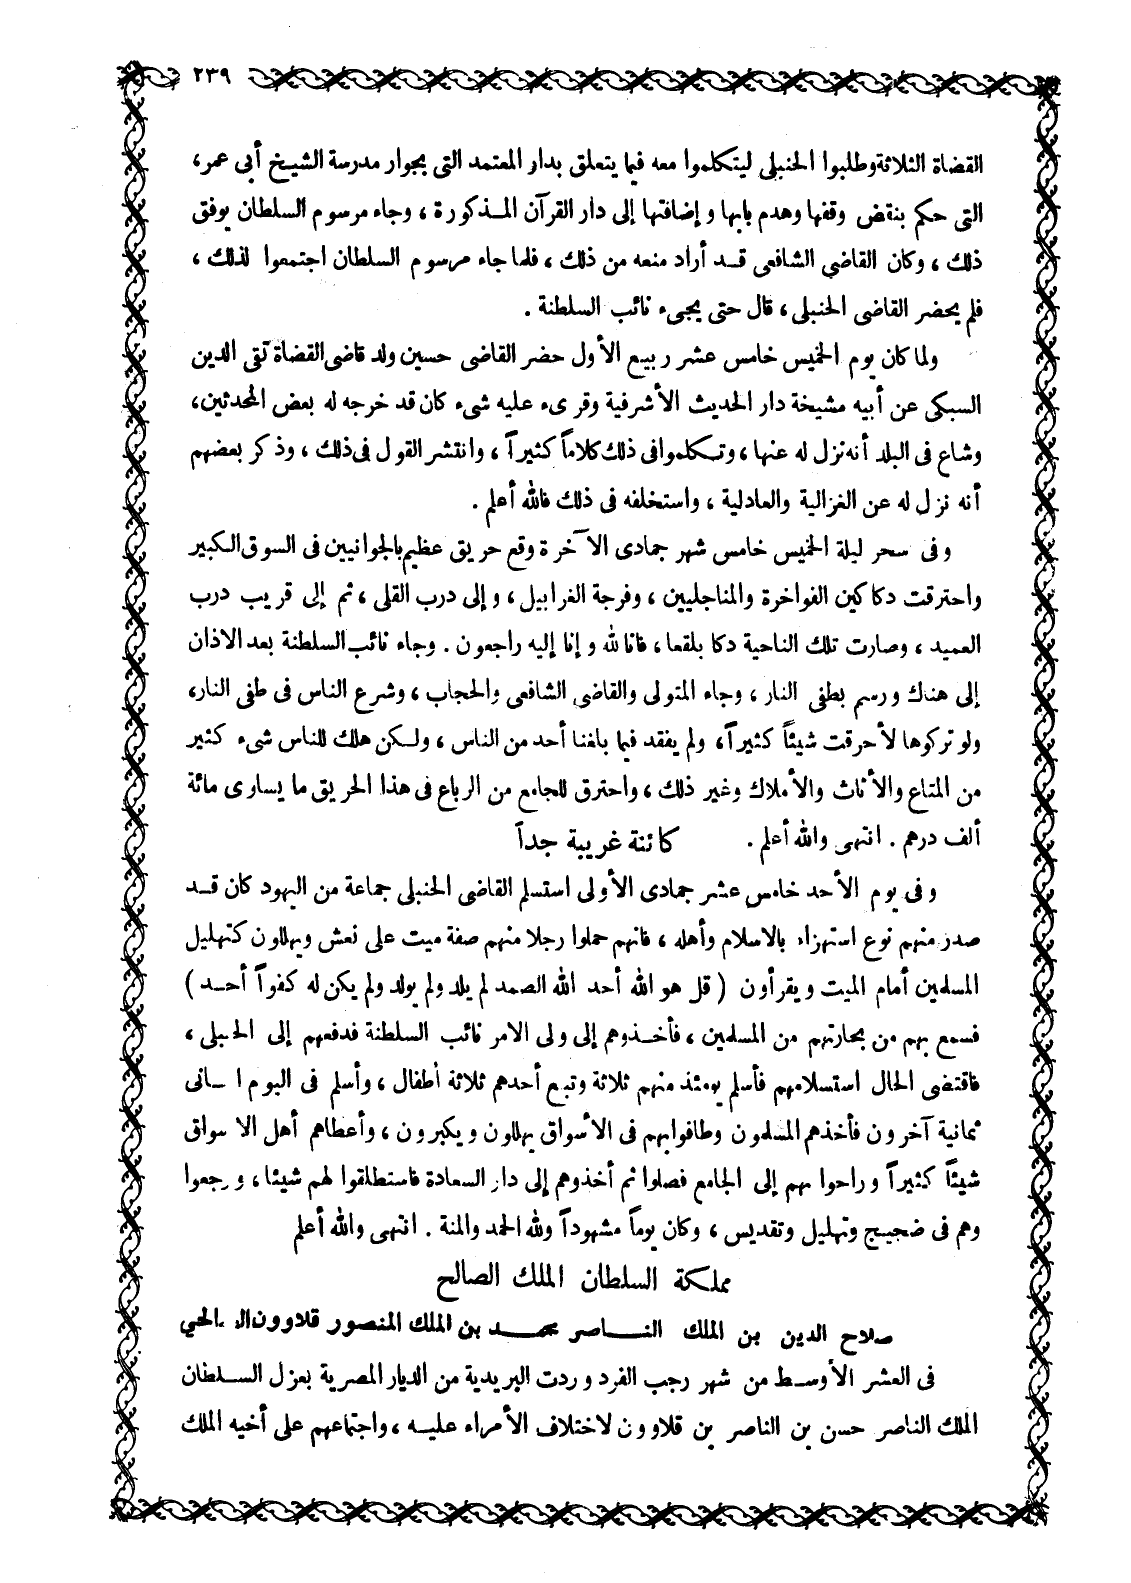 ٢٣٩
القضاة الثلاثة وطلبوا الحنبلى ليتكلموا معه فيما يتعلق بدار المعتمد التى بجوار مدرسة الشيخ أبى عمر،
التى حكم بنقض وقفها وهدم بابها وإضافتها إلى دار القرآن المذكورة، وجاء مرسوم السلطان يوفق
ذلك، وكان القاضى الشافعى قد أراد منعه من ذلك، فلما جاء مرسوم السلطان اجتمعوا لذلك،
فلم يحضر القاضى الحنبلى، قال حتى يجىء نائب السلطنة .
ولما كان يوم الخميس خامس عشر ربيع الأول حضر القاضى حسين ولد قاضى القضاة تقى الدين
السبكى عن أبيه مشيخة دار الحديث الأشرفية وقرىء عليه شىء كان قد خرجه له بعض المحدثين،
وشاع فى البلد أنه نزل له عنها، وتكلموا فى ذلك كلاماً كثيراً، وانتشر القول فى ذلك، وذكر بعضهم
أنه نزل له عن الغزالية والعادلية، واستخلفه فى ذلك فالله أعلم .
وفى سحر ليلة الخميس خامس شهر جمادى الآخرة وقع حريق عظيم بالجوانيين فى السوق الكبير
واحترقت دكاكين الفواخرة والمناجليين، وفرجة الغرابيل، وإلى درب القلى، ثم إلى قريب درب
العميد، وصارت تلك الناحية دكا بلقعا، فانا لله وإنا إليه راجعون . وجاء نائب السلطنة بعد الاذان
إلى هناك ورسم بطفى النار، وجاء المتولى والقاضى الشافعى والحجاب، وشرع الناس فى طفى النار،
ولو تركوها لأحرقت شيئاً كثيراً، ولم يفقد فيما بلغنا أحد من الناس، ولكن هلك للناس شىء كثير
من المتاع والأثاث والأملاك وغير ذلك، واحترق للجامع من الرباع فى هذا الحريق ما يساوى مائة
ألف درهم . انتهى والله أعلم . كائنة غريبة جداً
وفى يوم الأحد خامس عشر جمادى الأولى استسلم القاضى الحنبلى جماعة من اليهود كان قد
صدر منهم نوع استهزاء بالاسلام وأهله، فانهم حملوا رجلا منهم صفة ميت على نعش ويهللون كتهليل
المسلمين أمام الميت ويقرأون ( قل هو الله أحد الله الصمد لم يلد ولم يولد ولم يكن له كفواً أحد )
فسمع بهم من بحارتهم من المسلمين، فأخذوهم إلى ولى الامر نائب السلطنة فدفعهم إلى الحنبلى،
فاقتضى الحال استسلامهم فأسلم يومئذ منهم ثلاثة وتبع أحدهم ثلاثة أطفال، وأسلم فى اليوم الثانى
ثمانية آخرون فأخذهم المسلمون وطافوا بهم فى الأسواق يهللون ويكبرون، وأعطاهم أهل الاسواق
شيئاً كثيراً وراحوا بهم إلى الجامع فصلوا ثم أخذوهم إلى دار السعادة فاستطلقوا لهم شيئا، ورجعوا
وهم فى ضجيج وتهليل وتقديس، وكان يوماً مشهوداً ولله الحمد والمنة . انتهى والله أعلم
مملكة السلطان الملك الصالح
صلاح الدين بن الملك الناصر محمد بن الملك المنصور قلاوون الصالحي
فى العشر الأوسط من شهر رجب الفرد وردت البريدية من الديار المصرية بعزل السلطان
الملك الناصر حسن بن الناصر بن قلاوون لاختلاف الأمراء عليه، واجتماعهم على أخيه الملك